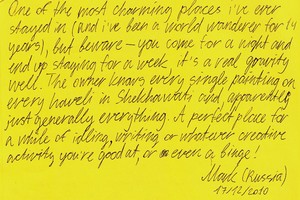 One of the most charming places i've ever
stayed in (and i've been a world wanderer for 14
years), but beware — you come for a night and
end up staying for a week, it's a real gravity
well. The owner knows every single painting on
every haveli in Shekhawati and, apparently,
just generally everything. A perfect place for
a while of idling, writing or whatever creative
activity you're good at, or even a binge!
Mark (Russia)
17/12/2010